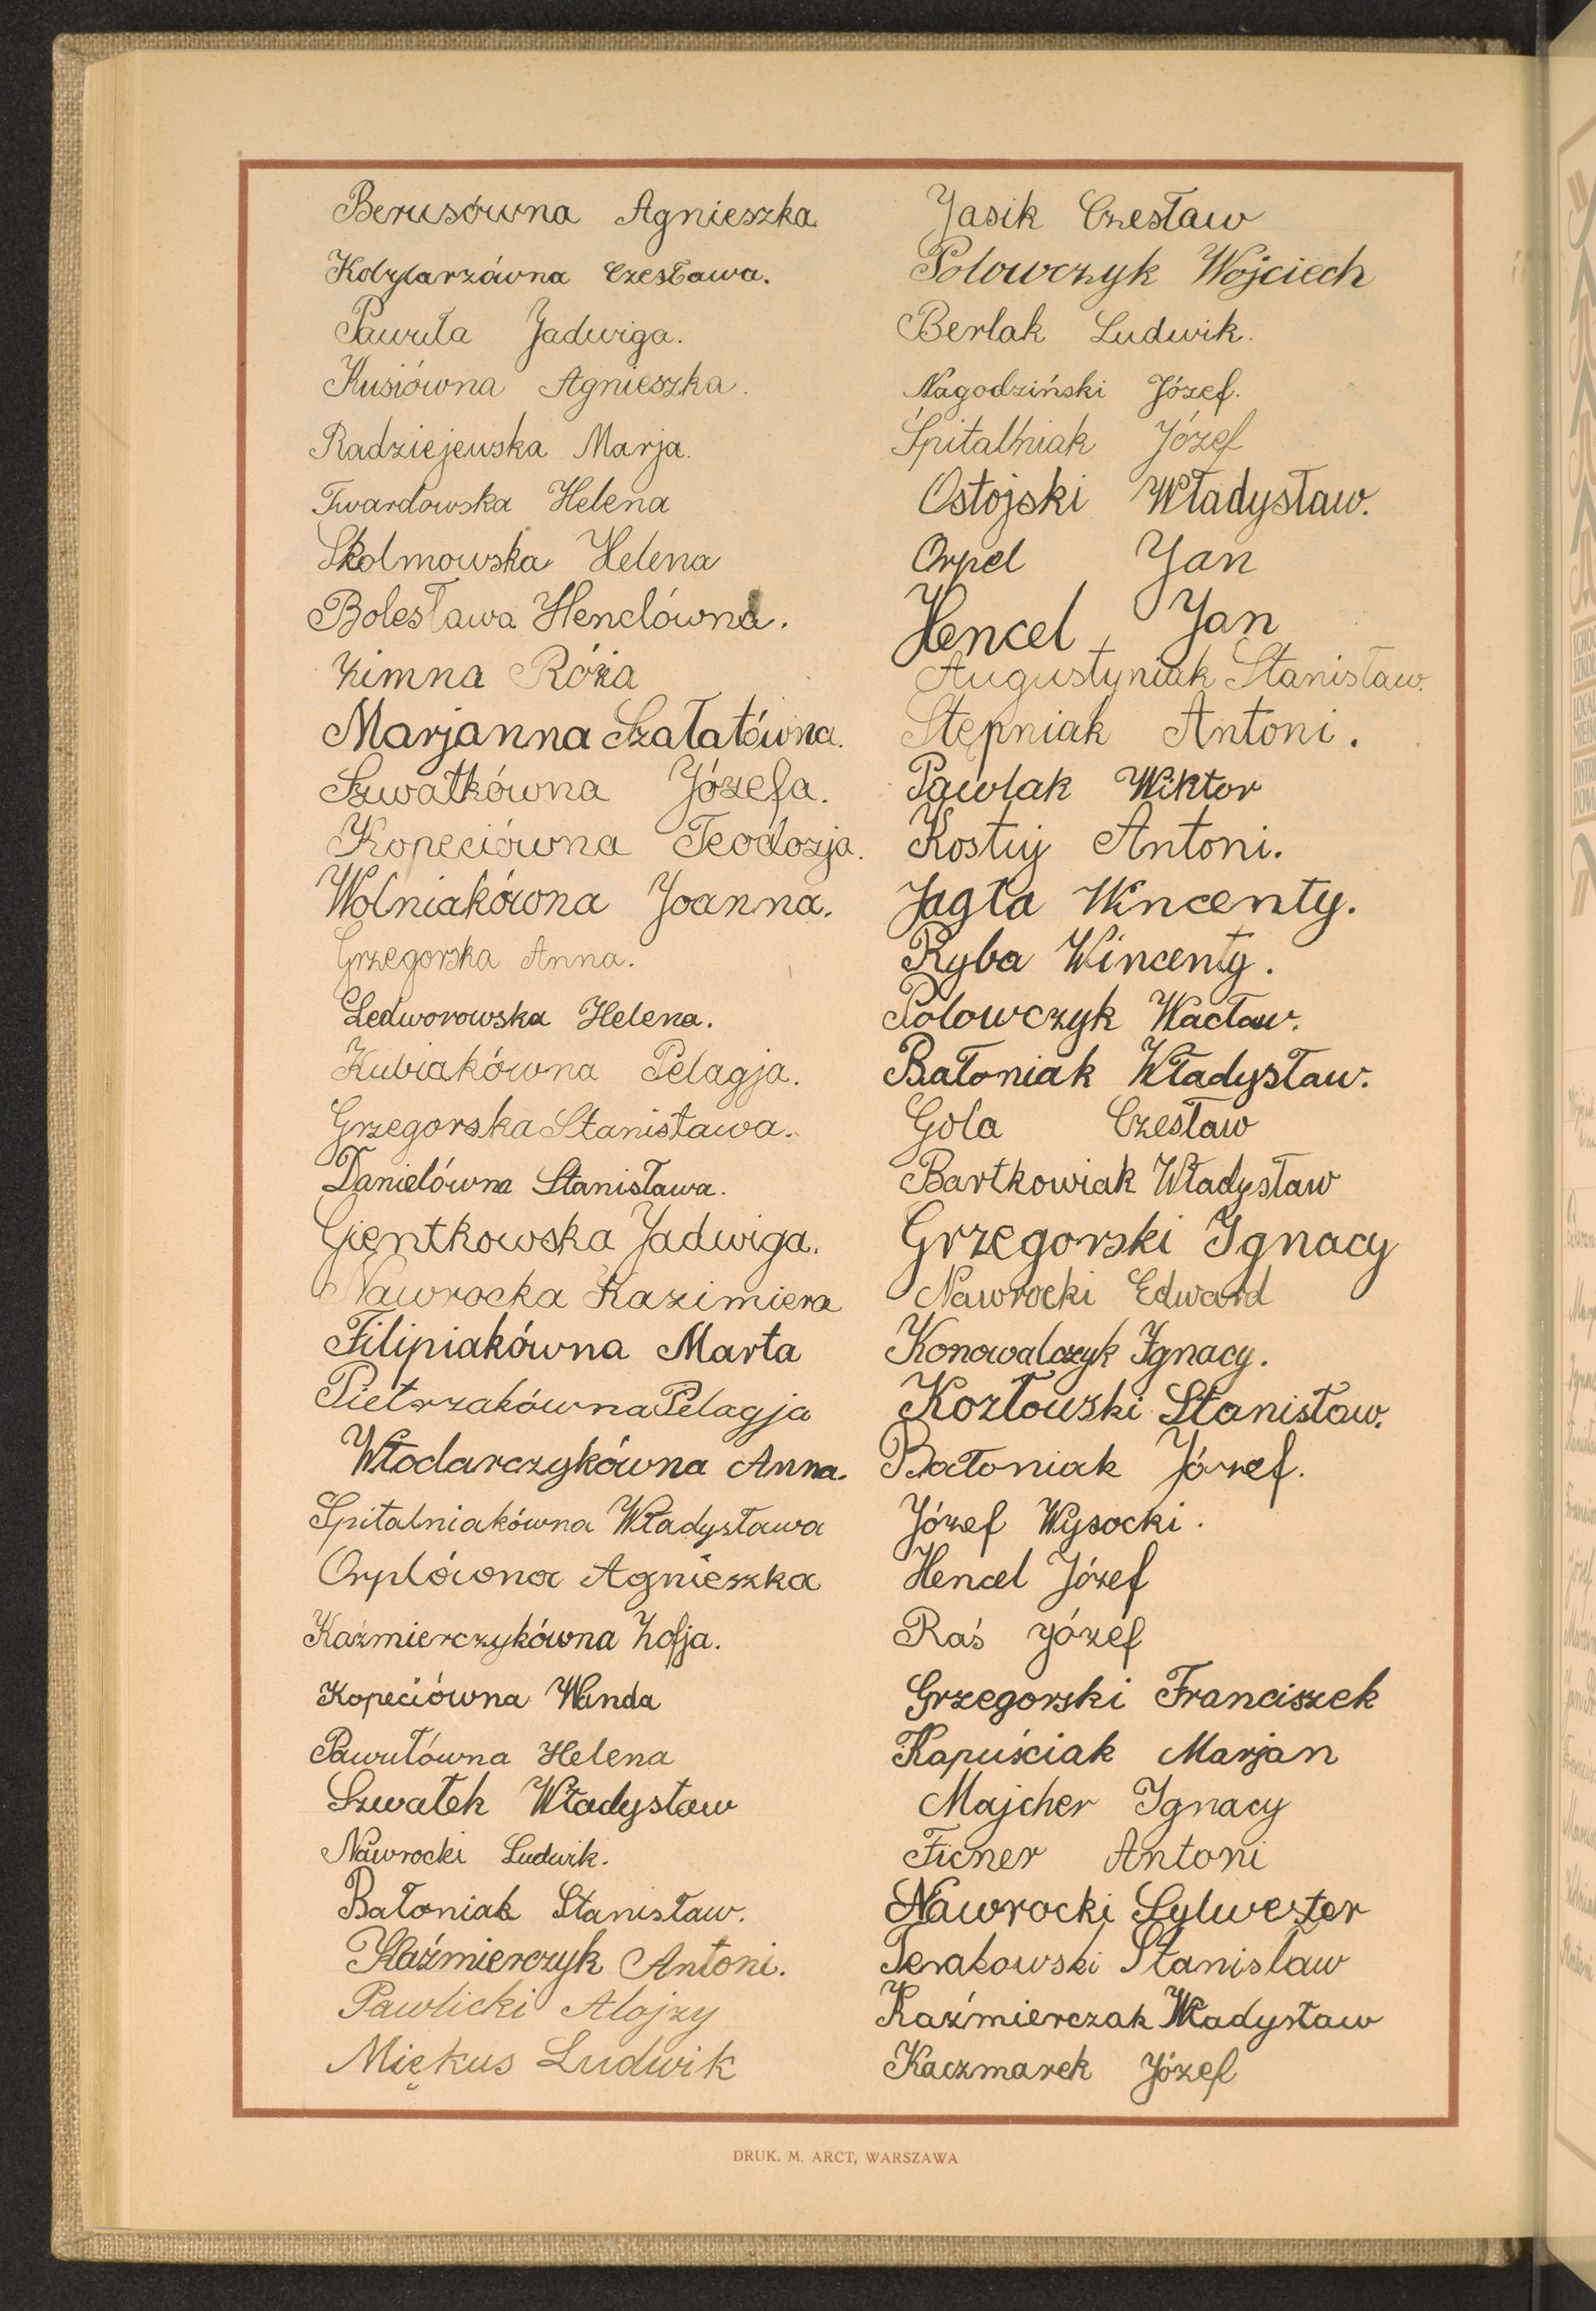 Berusówna Agnieszka
Kobylarzówna Czesława.
Pawuła Jadwiga.
Kusiówna Agnieszka.
Radziejewska Marja.
Twardowska Helena
Skolmowska Helena
Bolesława Henclówna.
Zimna Róża
Marjanna Szałatówna.
Szwatkówna Józefa.
Kopeciówna Teodozja.
Wolniakówna Joanna.
Grzegorska Anna.
Ledworowska Helena.
Kubiakówna Pelagja.
Grzegorska Stanisława.
Danielówna Stanisława.
Gjentkowska Jadwiga.
Nawrocka Kazimiera
Filipiakówna Marta
Pietrzakówna Pelagja
Włodarczykówna Anna.
Spitalniakówna Władysława
Orplówna Agnieszka
Kaźmierczykówna Zofja.
Kopeciówna Wanda
Pawułówna Helena
Szwatek Władysław
Nawrocki Ludwik.
Batoniak Stanisław.
Kaźmierczyk Antoni.
Pawlicki Alojzy
Miękus Ludwik
Jasik Czesław
Polowczyk Wojciech
Berlak Ludwik.
Nagodziński Józef.
Śpitalniak Józef
Ostojski Władysław.
Orpel Jan
Hencel Jan
Augustyniak Stanisław.
Stępniak Antoni.
Pawlak Wiktor
Kostuj Antoni.
Jagła Wincenty.
Ryba Wincenty.
Polowczyk Wacław.
Batoniak Władysław.
Gola Czesław
Bartkowiak Władysław
Grzegorski Ignacy
Nawrocki Edward
Konowalczyk Ignacy.
Kozłowski Stanisław.
Batoniak Józef.
Józef Wysocki.
Hencel Józef
Raś Józef
Grzegorski Franciszek
Kapuściak Marjan
Majcher Ignacy
Ficner Antoni
Nawrocki Sylwester
Terakowski Stanisław
Kaźmierczak Władysław
Kaczmarek Józef
DRUK. M. ARCT, WARSZAWA